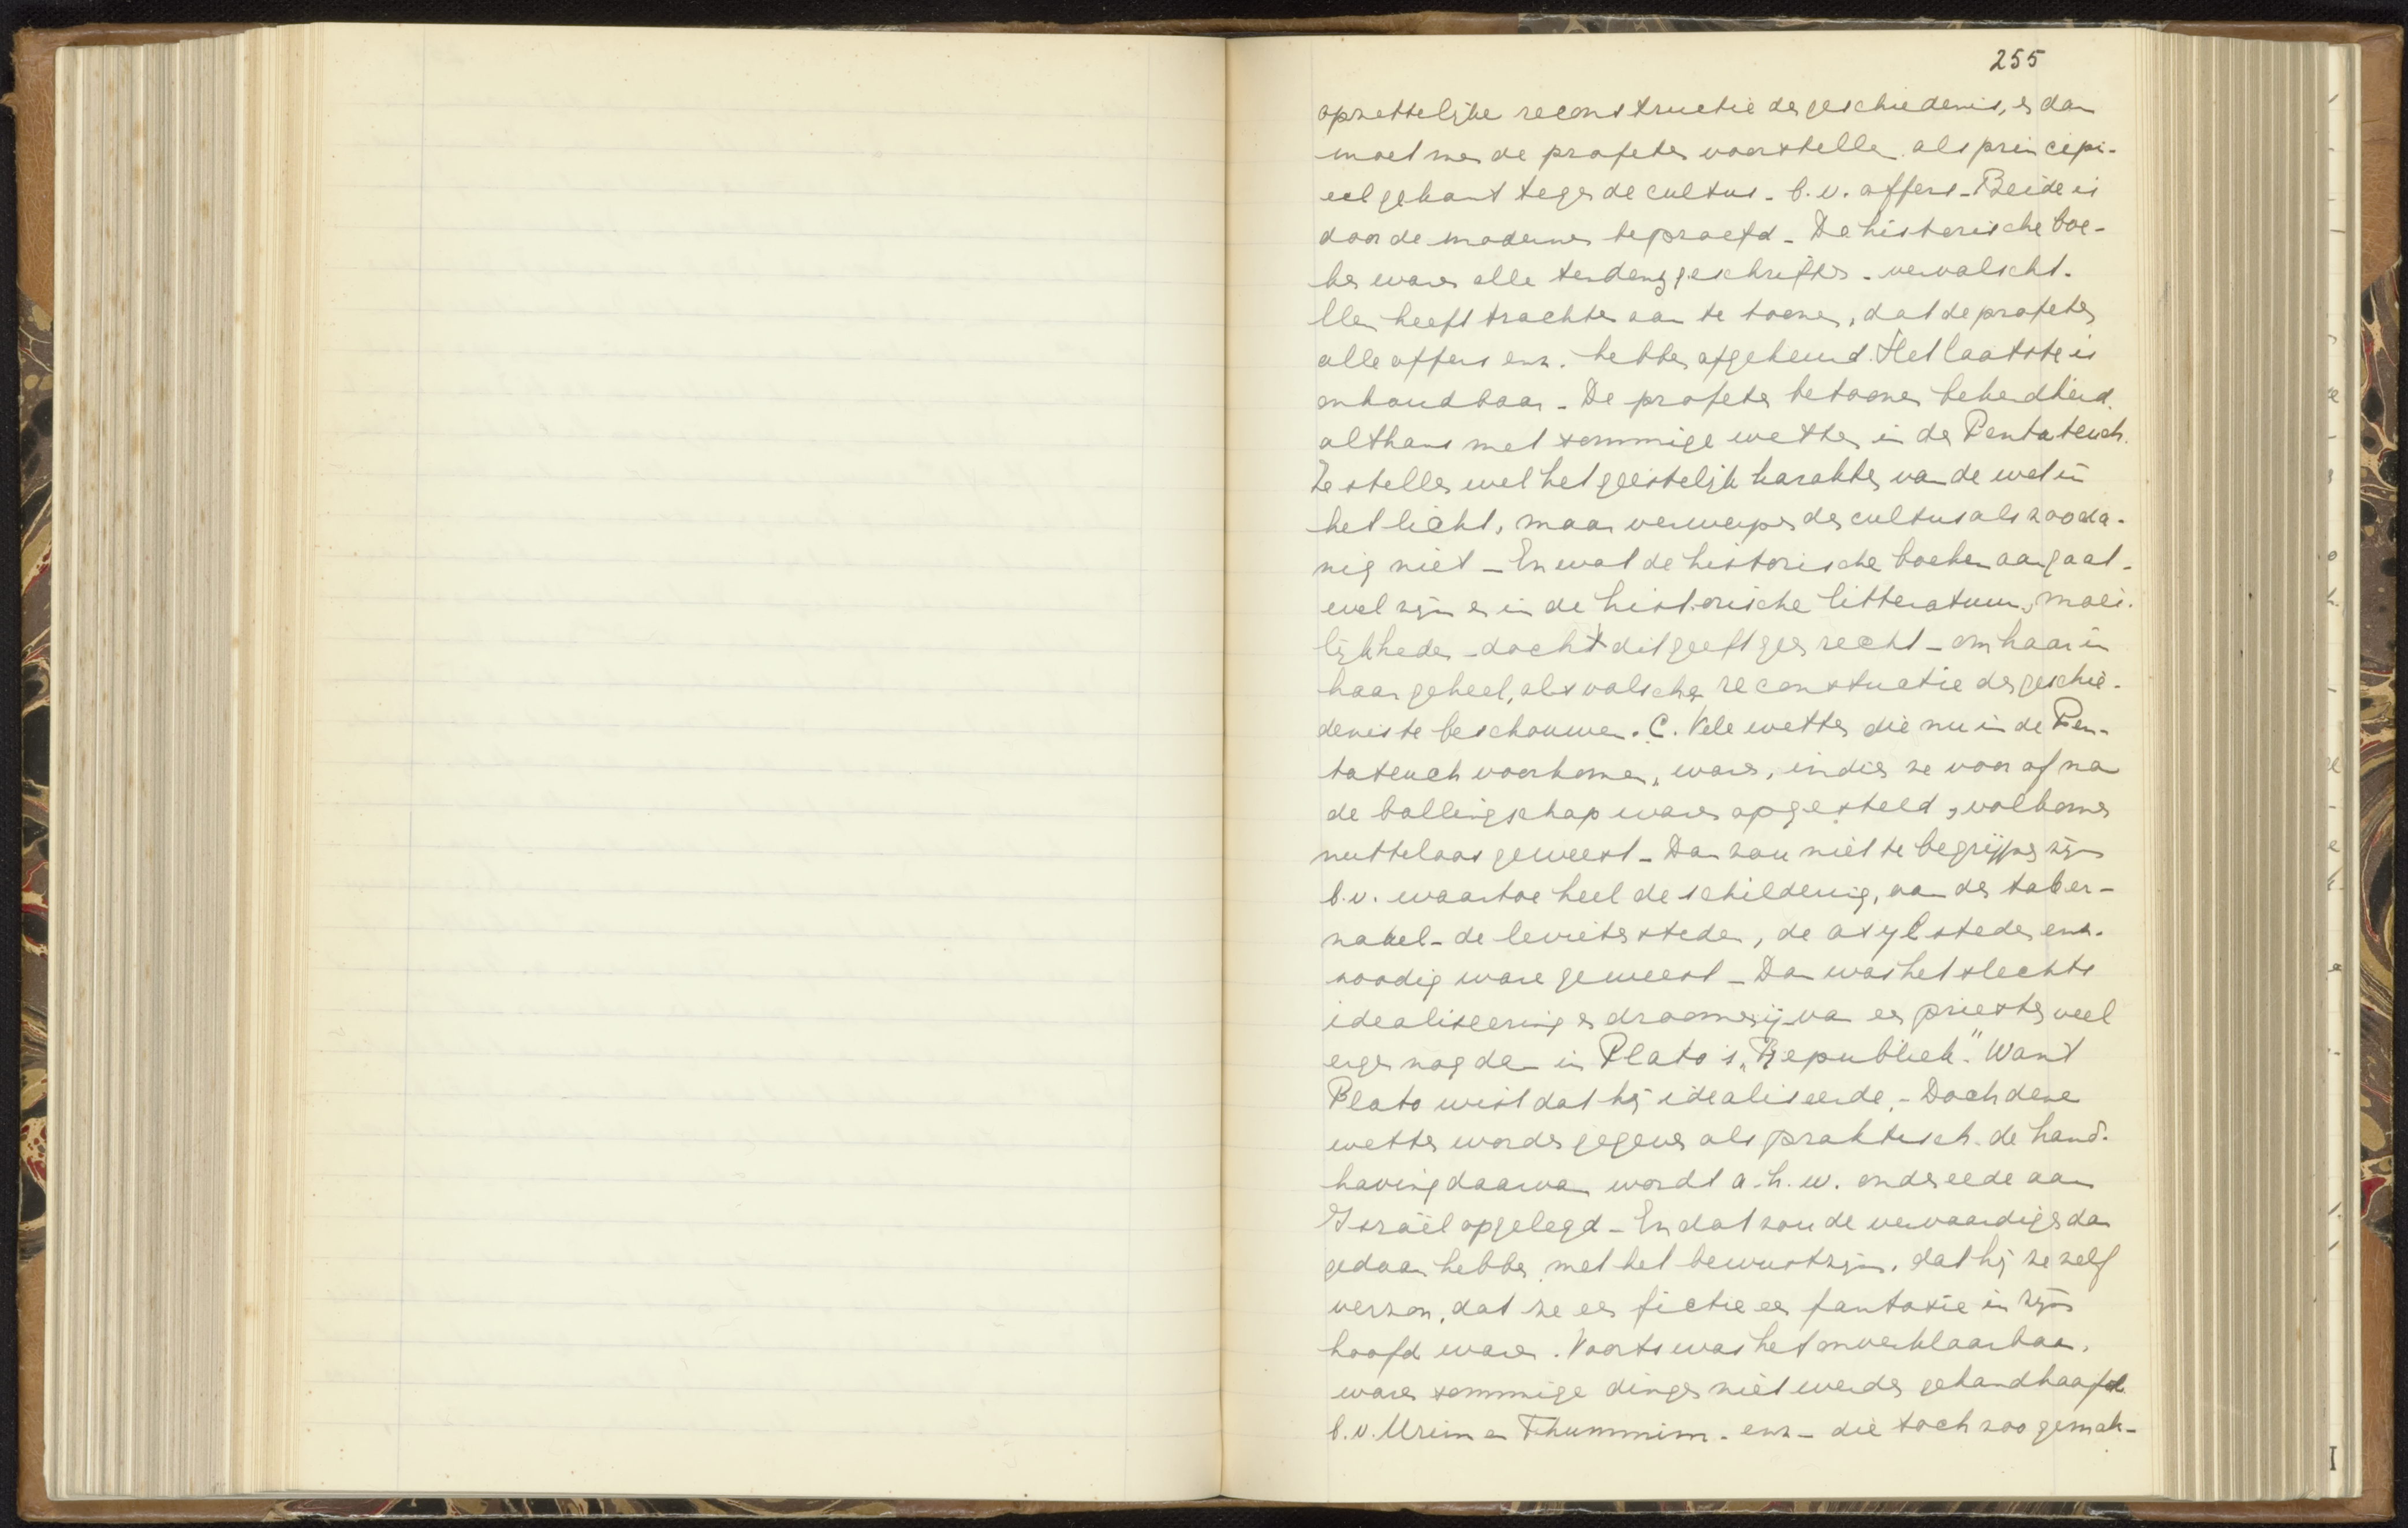 255
opzettelijke reconstructie der geschiedenis, en dan
moet men de profeten voorstellen als principi-
eel gekant tegen de cultus - b.v. offers - Beide is
door de modernen beproefd - De historische boe-
ken waren alle tendenzgeschriften - vervalscht.
Men heeft trachten aan te toonen, dat de profeten
alle offers enz. hebben afgekeurd. Het laatste is
onhoudbaar - De profeten betoonen bekendheid
althans met sommige wetten in den Pentateuch.
Ze stellen wel het geestelijk karakter van de wet in
het licht, maar verwerpen den cultus als zooda-
nig niet - En wat de historische boeken aangaat -
wel zijn er in de historische litteratuur, moei-
lijkheden - doch dit geeft geen recht - om haar in
haar geheel, als valsche reconstuctie der geschie-
denis te beschouwen. C. Vele wetten die nu in de Pen-
tateuch voorkomen, waren, indien ze voor of na
de ballingschap waren opgesteld, volkomen
nutteloos geweest - Dan zou niet te begrijpen zijn
b.v. waartoe heel de schildering, van den taber-
nakel - de levietensteden, de asylsteden enz.
noodig ware geweest - Dan was het slechts
idealiseering en droomerij van een priester veel
erger nog dan in Plato's „Republiek." Want
Plato wist dat hij idealiseerde. - Doch deze
wetten worden gegeven als praktisch. de hand-
having daarvan wordt a.h.w. onder eede aan
Israël opgelegd - En dat zou de vervaardiger dan
gedaan hebben met het bewustzijn. dat hij ze zelf
verzon, dat ze een fictie een fantasie in zijn
hoofd waren. Voorts was het onverklaarbaar,
waarom sommige dingen niet werden gehandhaafd
b.v. Urim en Thummim - enz - die toch zoo gemak-